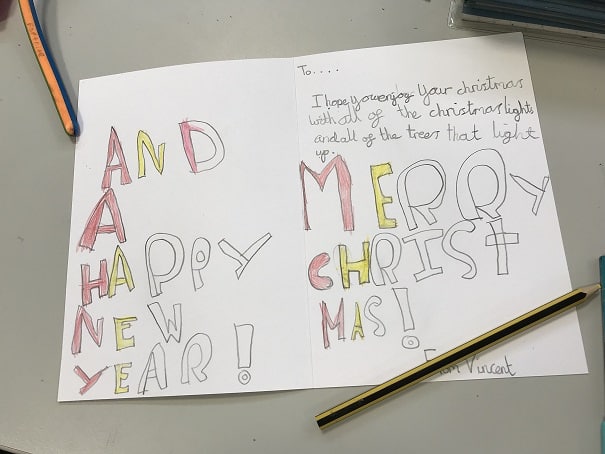 AND
A
HAPPY
NEW
YEAR!
To....
I hope you enjoy your christmas
with all of the christmas lights
and all of the trees that light
up.
MERRY
CHRIST
MAS!
From Vincent